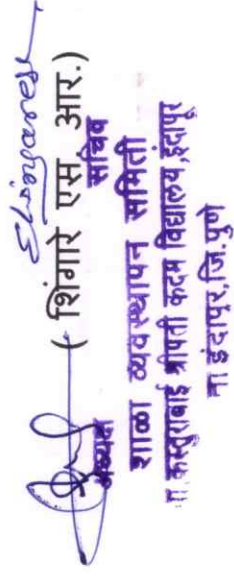 ( शिंगारे एस. आर.)
अध्यक्ष सचिव
शाळा व्यवस्थापन समिती
कस्तुराबाई श्रीपती कदम विद्यालय,इंदापूर
ता इंदापूर,जि.पुणे